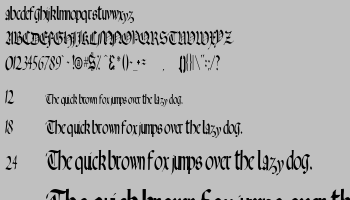 abcdefghijklmnopqrstuvwxyz
ABCDEFGHIJKLMNOPQRSTUVWXYZ
0123456789
12 The quick brown fox jumps over the lazy dog.
18 The quick brown fox jumps over the lazy dog.
24 The quick brown fox jumps over the lazy dog.
The quick brown fox jumps over th